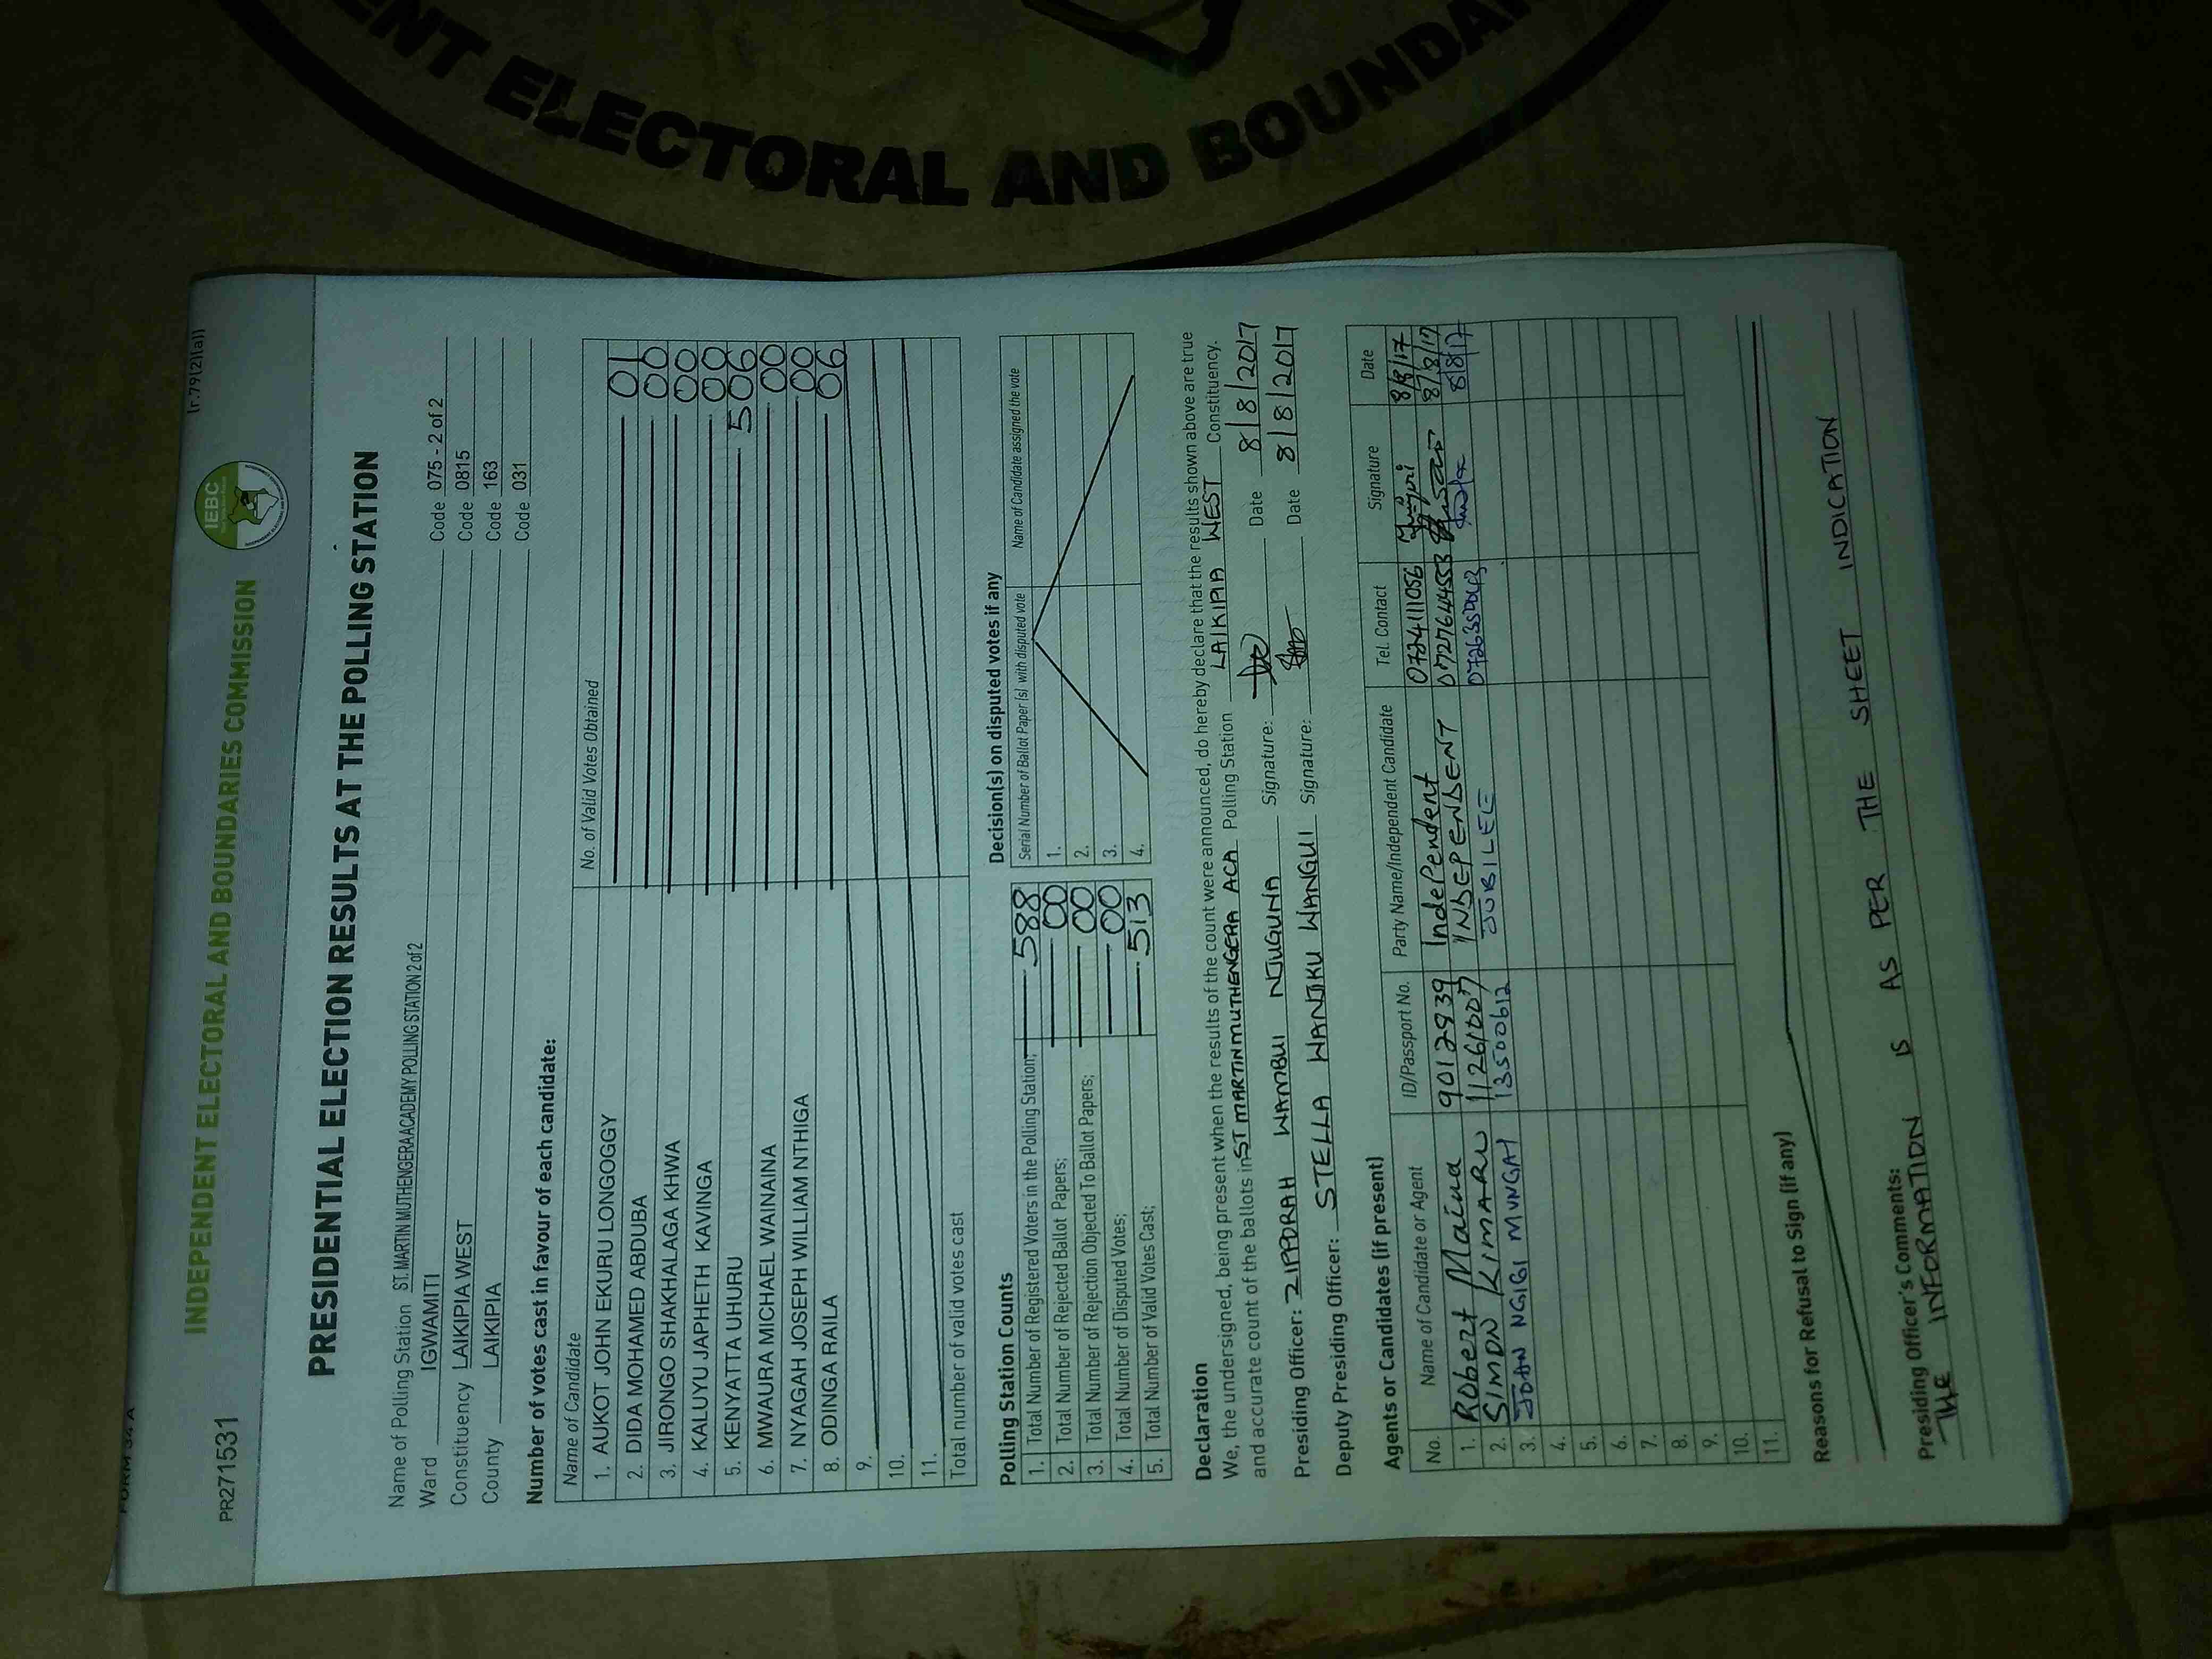 ENT ELECTORAL AND BOUNDAR
FORM 34 A
(r.79(2)(a))
INDEPENDENT ELECTORAL AND BOUNDARIES COMMISSION
IEBC
PR271531
PRESIDENTIAL ELECTION RESULTS AT THE POLLING STATION
Name of Polling Station ST. MARTIN MUTHENGERA ACADEMY POLLING STATION 2 of 2 Code 075 - 2 of 2
Ward IGWAMITI Code 0815
Constituency LAIKIPIA WEST Code 163
County LAIKIPIA Code 031
Number of votes cast in favour of each candidate:
Name of Candidate No. of Valid Votes Obtained
1. AUKOT JOHN EKURU LONGOGGY 01
2. DIDA MOHAMED ABDUBA 00
3. JIRONGO SHAKHALAGA KHWA 00
4. KALUYU JAPHETH KAVINGA 00
5. KENYATTA UHURU 506
6. MWAURA MICHAEL WAINAINA 00
7. NYAGAH JOSEPH WILLIAM NTHIGA 00
8. ODINGA RAILA 06
9.
10.
11.
Total number of valid votes cast
Polling Station Counts
1. Total Number of Registered Voters in the Polling Station; 588
2. Total Number of Rejected Ballot Papers; 00
3. Total Number of Rejection Objected To Ballot Papers; 00
4. Total Number of Disputed Votes; 00
5. Total Number of Valid Votes Cast; 513
Decision(s) on disputed votes if any
Serial Number of Ballot Paper (s) with disputed vote Name of Candidate assigned the vote
1.
2.
3.
4.
Declaration
We, the undersigned, being present when the results of the count were announced, do hereby declare that the results shown above are true
and accurate count of the ballots in ST MARTIN MUTHENGERA ACA Polling Station LAIKIPIA WEST Constituency.
Presiding Officer: ZIPPORAH WAMBUI NJUGUNA Signature: Date 8/8/2017
Deputy Presiding Officer: STELLA WANJKU WANGUI Signature: Date 8/8/2017
Agents or Candidates (if present)
No. Name of Candidate or Agent ID/Passport No. Party Name/Independent Candidate Tel. Contact Signature Date
1. Robert Maina 9012939 Independent 0724111056 8/8/17
2. SIMON KIMARU INDEPENDENT 0727644553 8/8/17
3. JOHN NGIGI MUNGAI 13500612 JUBILEE 8/8/17
4.
5.
6.
7.
8.
9.
10.
11.
Reasons for Refusal to Sign (if any)
Presiding Officer's Comments:
THE INFORMATION IS AS PER THE SHEET INDICATION